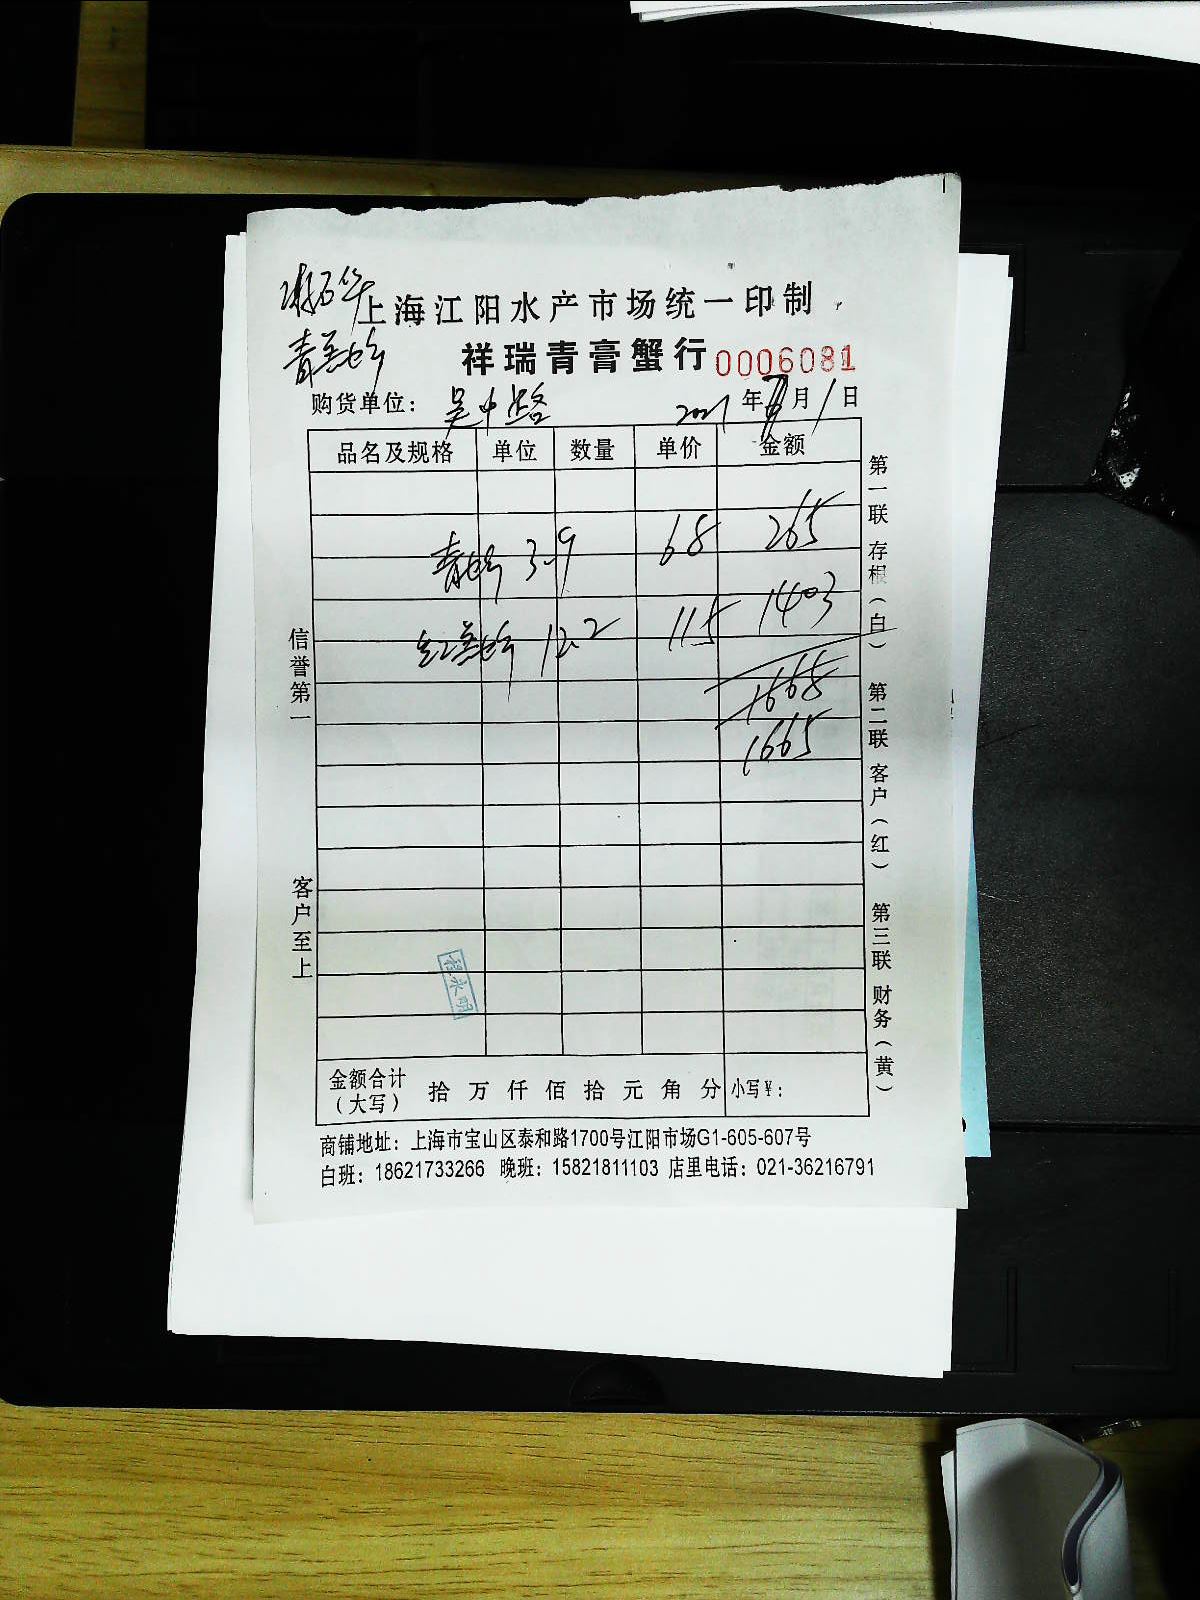 上海江阳水产市场统一印制
祥瑞青膏蟹行 0006081
购货单位： 吴中路 2021 年 月 1 日
品名及规格 单位 数量 单价 金额
3.9 68 265
12.2 115 1403
1668
1665
信誉第一
客户至上
第一联 存根（白）
第二联 客户（红）
第三联 财务（黄）
金额合计（大写） 拾 万 仟 佰 拾 元 角 分 小写￥：
商铺地址：上海市宝山区泰和路1700号江阳市场G1-605-607号
白班：18621733266 晚班：15821811103 店里电话：021-36216791